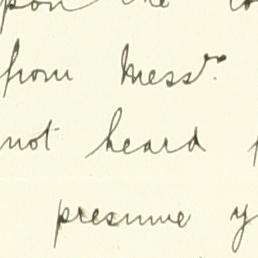 upon the
from Messrs.
not heard
presume y